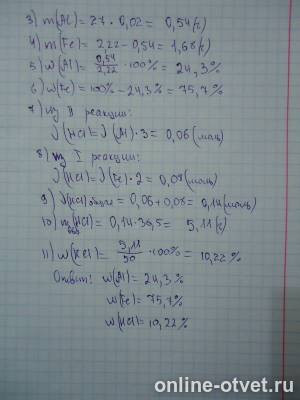 3) m(Al) = 27 · 0,02 = 0,54(г)
4) m(Fe) = 2,22 - 0,54 = 1,68(г)
5) w(Al) = 0,54/2,22 · 100% = 24,3%
6) w(Fe) = 100% - 24,3% = 75,7%
7) из II реакции:
ν(HCl) = ν(Al) · 3 = 0,06(моль)
8) из I реакции:
ν(HCl) = ν(Fe) · 2 = 0,08(моль)
9) ν(HCl) общее = 0,06 + 0,08 = 0,14(моль)
10) m(HCl) = 0,14 · 36,5 = 5,11(г)
11) w(HCl) = 5,11/50 · 100% = 10,22%
Ответ: w(Al) = 24,3%
w(Fe) = 75,7%
w(HCl) = 10,22%
online-otvet.ru